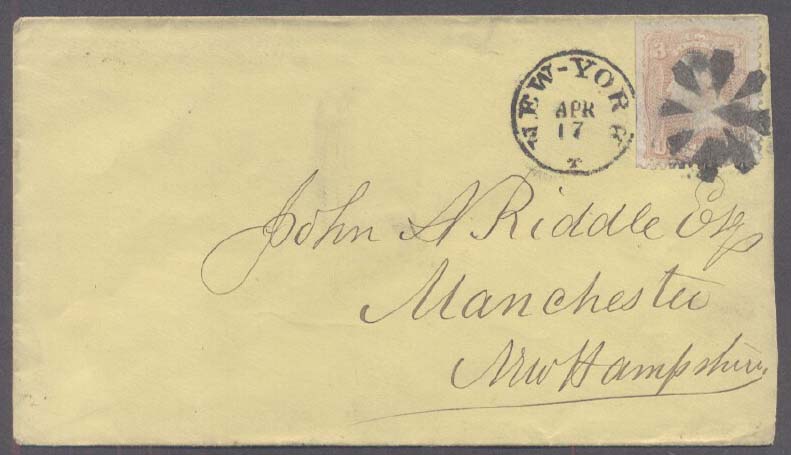 NEW-YORK
APR
17
3
John A Riddle Esq
Manchester
New Hampshire.